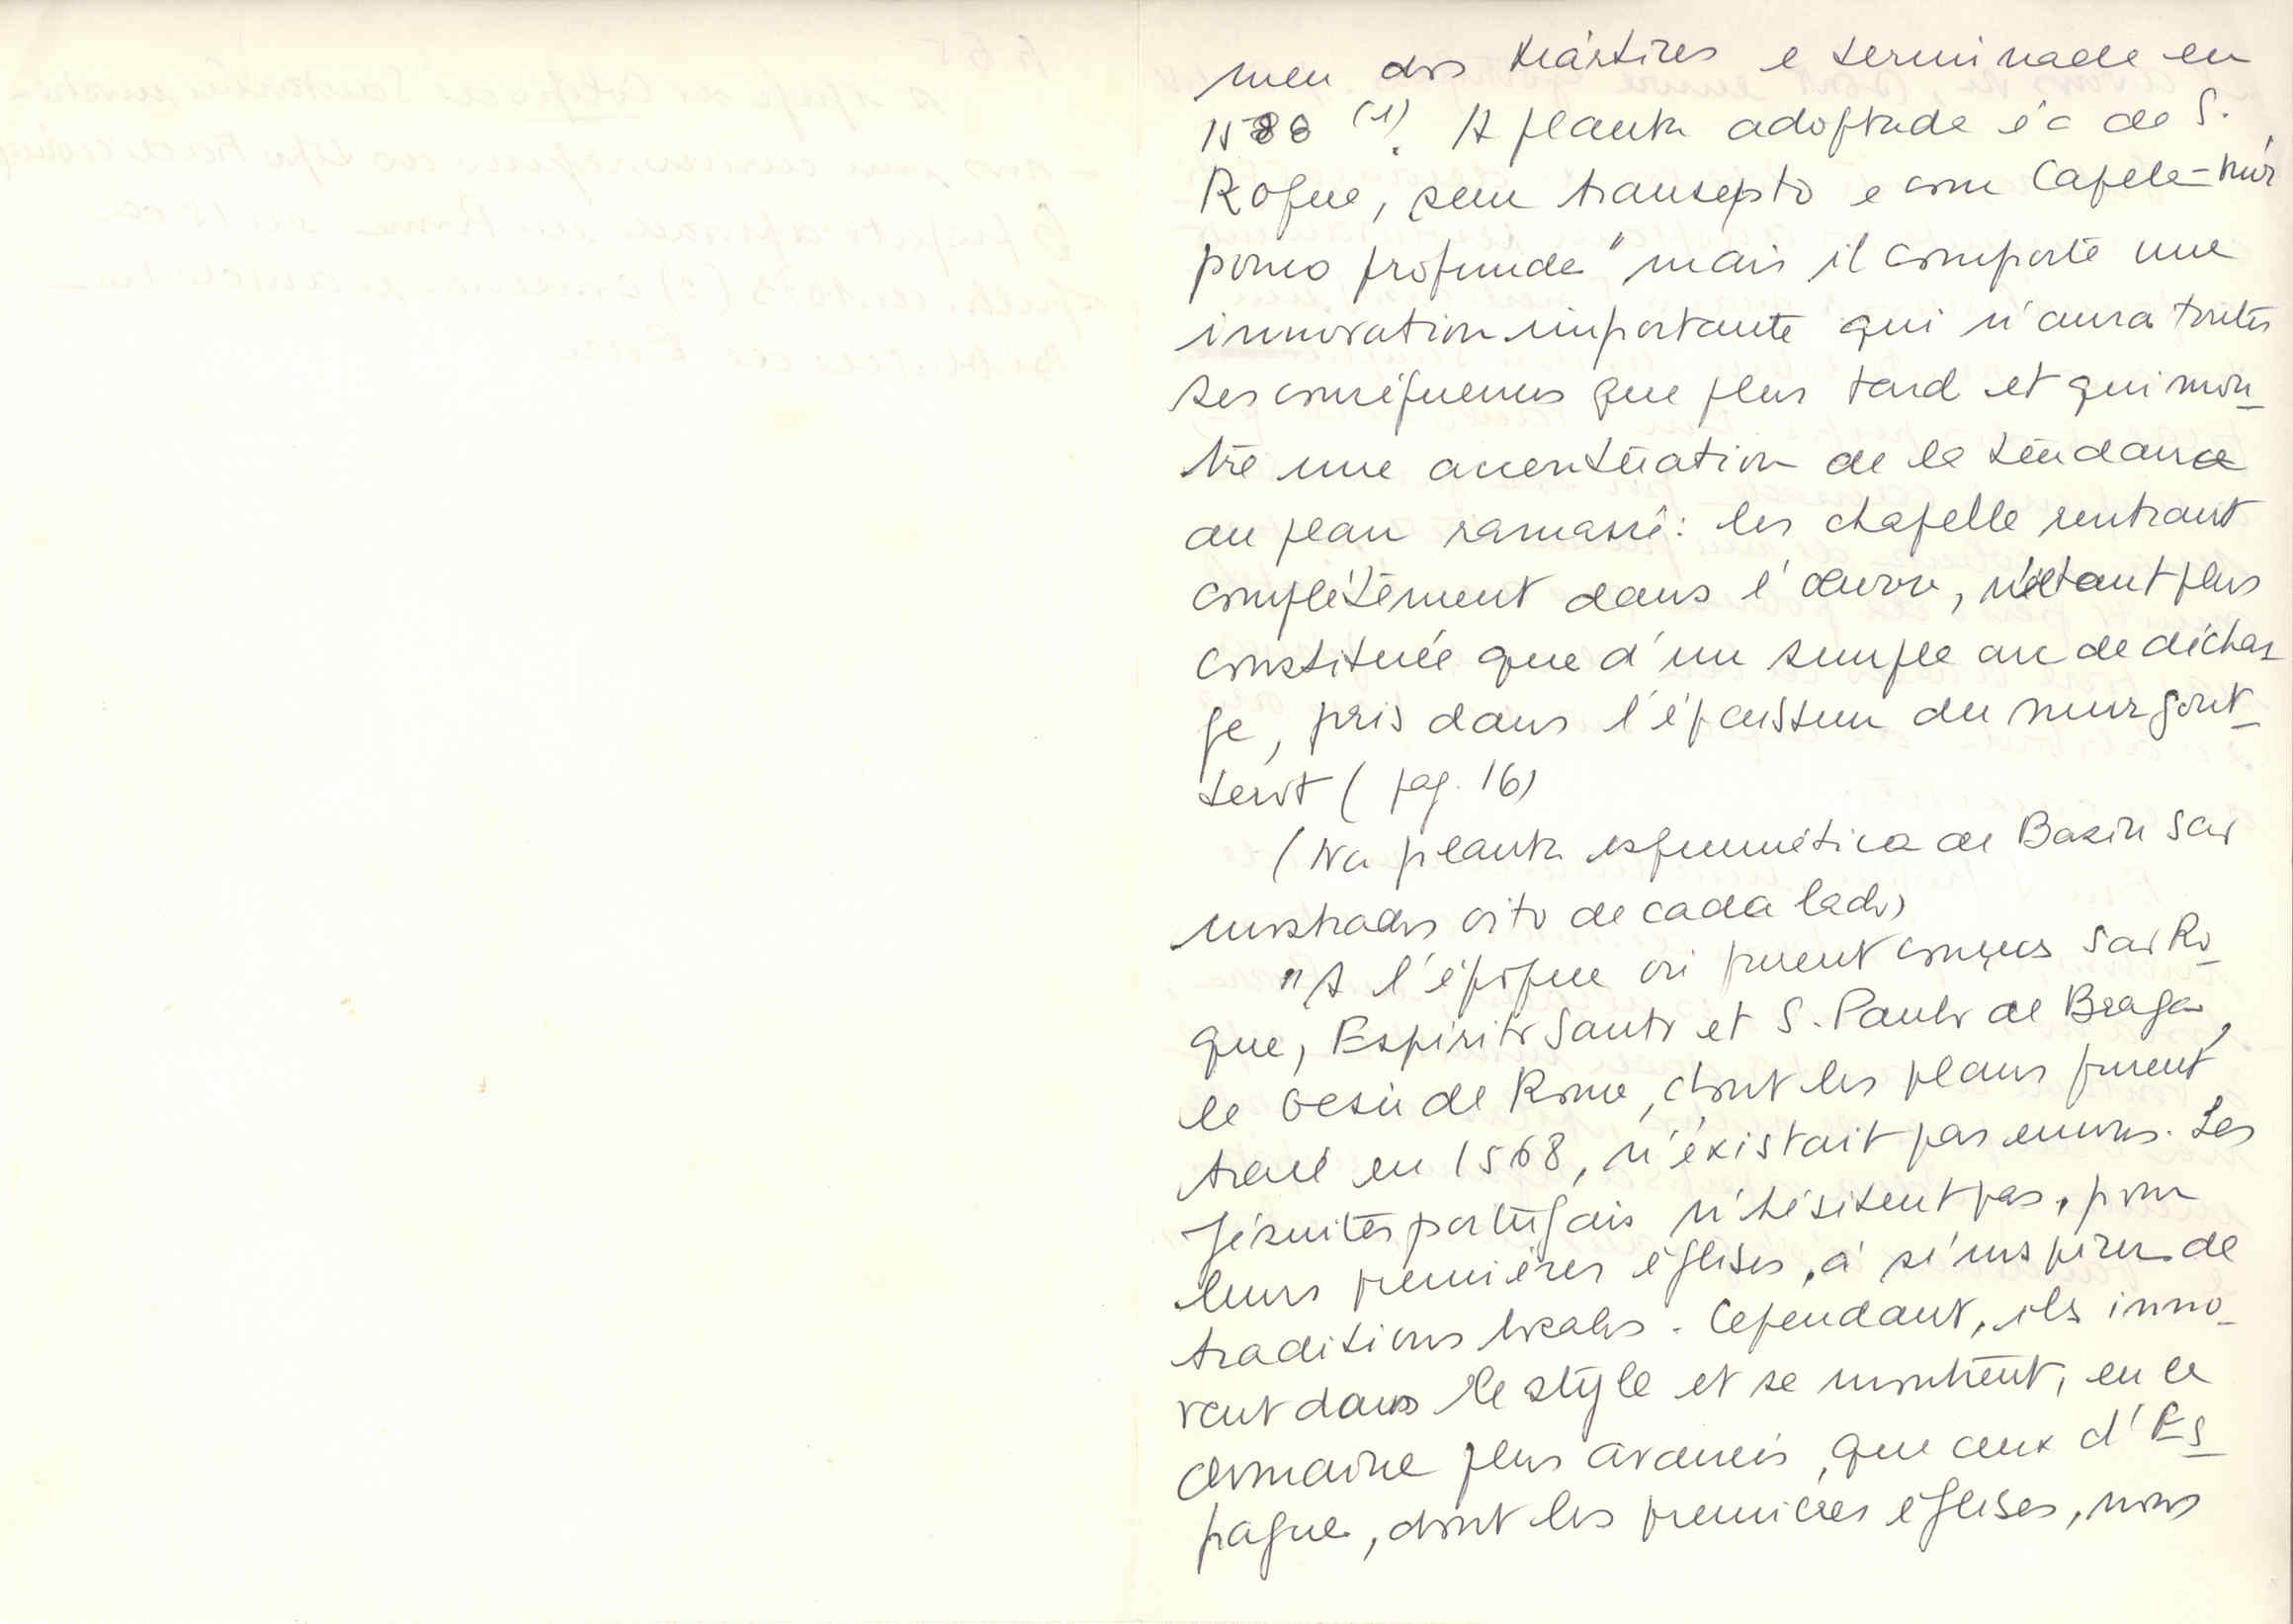 meu dos Mártires e terminada em
1588 (1). A planta adoptada é a de S.
Roque, sem transepto e com Capela-mór
pouco profunda" mais il comporte une
innovation importante qui n'aura toutes
ses conséquences que plus tard et qui mon-
tre une accentuation de la tendance
au plan ramassé: les chapelle rentrant
complétement dans l'œuvre, n'étant plus
constituée que d'un simple arc de déchar-
ge, pris dans l'épaisseur du mur gout-
terot (pag. 16)
(Na planta esquemética de Bazin são
mostrados oito de cada lado)
"A l'époque où furent conçus São Ro-
que, Espírito Santo et S. Paulo de Braga,
le Gesù de Rome, dont les plans furent
tracé en 1568, n'éxistait pas encore. Les
Jésuites portugais n'hésitent pas, pour
leurs premières églises, à s'inspirer de
traditions locales. Cependant, ils inno-
vent dans le style et se montrent, en ce
domaine plus avancés, que ceux d'Es-
pagne, dont les premières églises, nous